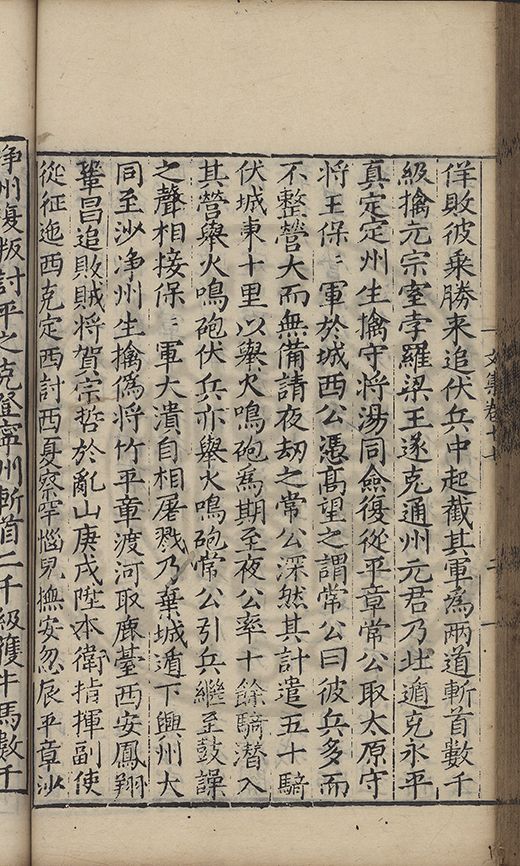 佯敗彼乘勝来追伏兵中起截其軍爲兩道斬首數千
級擒元宗室孛羅梁王遂克通州元君乃北遁克永平
真定定州生擒守將湯同僉復從平章常公取太原守
將王保〻軍於城西公憑髙望之謂常公曰彼兵多而
不整營大而無備請夜刼之常公深然其計遣五十騎
伏城東十里以舉火鳴砲爲期至夜公率十餘騎潜入
其營舉火鳴砲伏兵亦舉火鳴砲常公引兵繼至鼓譟
之聲相接保〻軍大潰自相屠戮乃棄城遁下興州大
同至沙净州生擒僞將竹平章渡河取鹿臺西安鳳翔
鞏昌追敗賊將賀宗哲於亂山庚戌陞本衛指揮副使
從征迤西克定西討西夏察罕惱兒撫安忽辰平章沙
净州復叛討平之克登寧州斬首二千級獲牛馬數千
文集卷十七